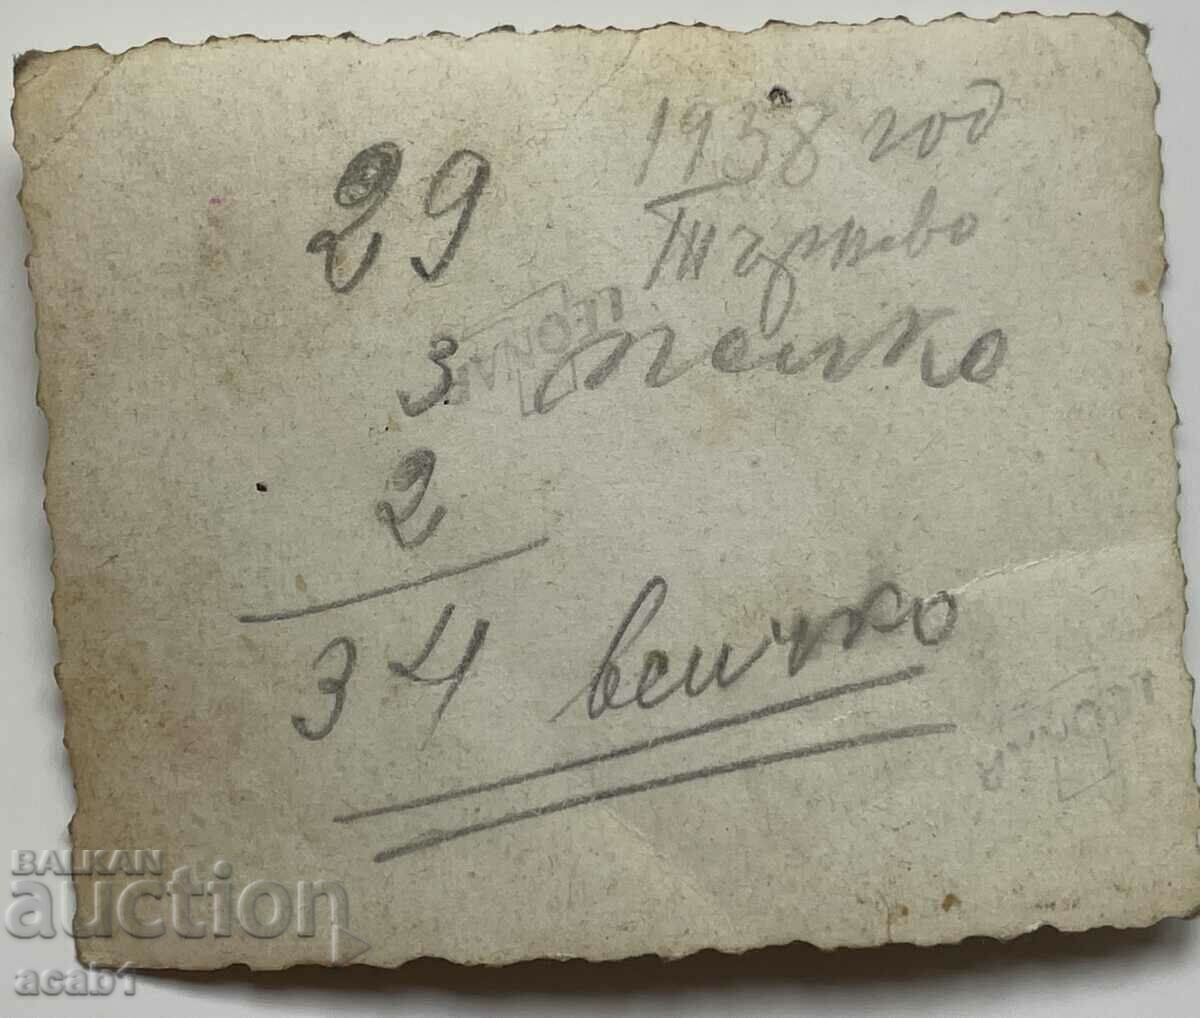 1938 год
Търново
29
3 Пенко
2
34 всичко
LEONAR
LEONAR
BALKAN
auction
acab1